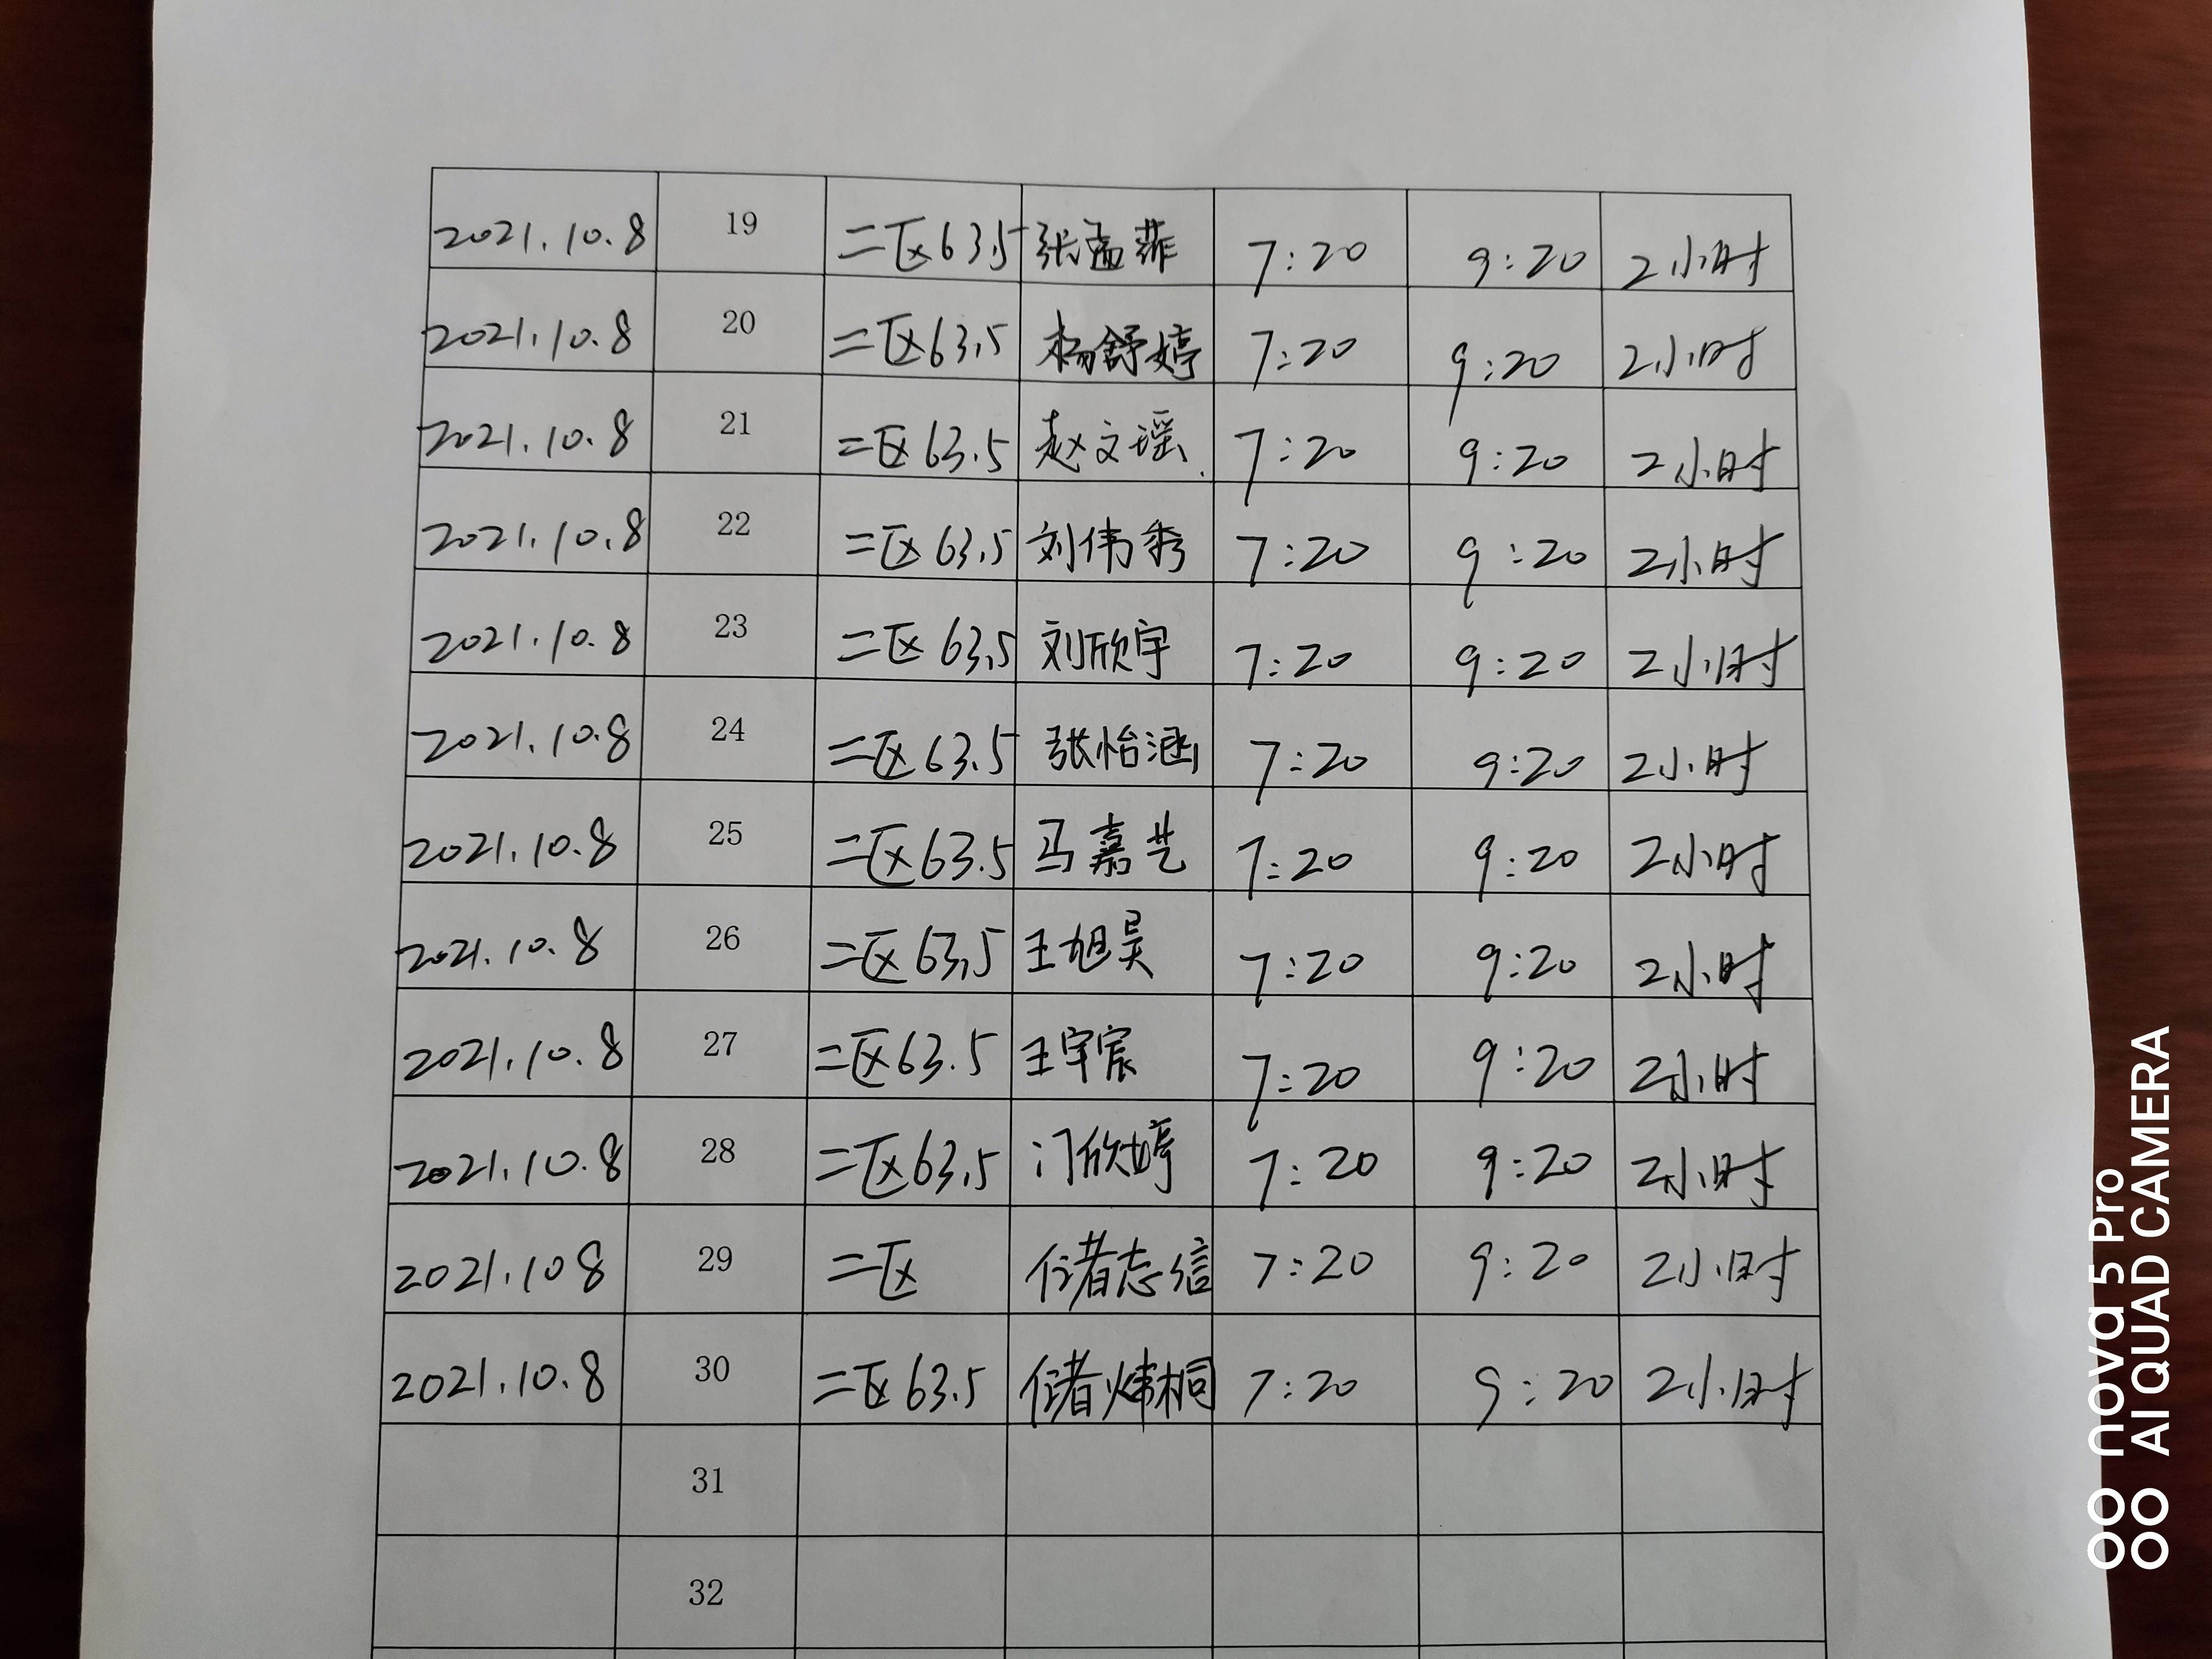 2021.10.8 19 二区63.5 张孟菲 7:20 9:20 2小时
2021.10.8 20 二区63.5 杨舒婷 7:20 9:20 2小时
2021.10.8 21 二区63.5 赵文瑶 7:20 9:20 2小时
2021.10.8 22 二区63.5 刘伟秀 7:20 9:20 2小时
2021.10.8 23 二区63.5 刘欣宇 7:20 9:20 2小时
2021.10.8 24 二区63.5 张怡涵 7:20 9:20 2小时
2021.10.8 25 二区63.5 马嘉艺 7:20 9:20 2小时
2021.10.8 26 二区63.5 王旭昊 7:20 9:20 2小时
2021.10.8 27 二区63.5 王宇宸 7:20 9:20 2小时
2021.10.8 28 二区63.5 门欣婷 7:20 9:20 2小时
2021.108 29 二区 储志信 7:20 9:20 2小时
2021.10.8 30 二区63.5 储炜桐 7:20 9:20 2小时
31
32
nova 5 Pro
AI QUAD CAMERA